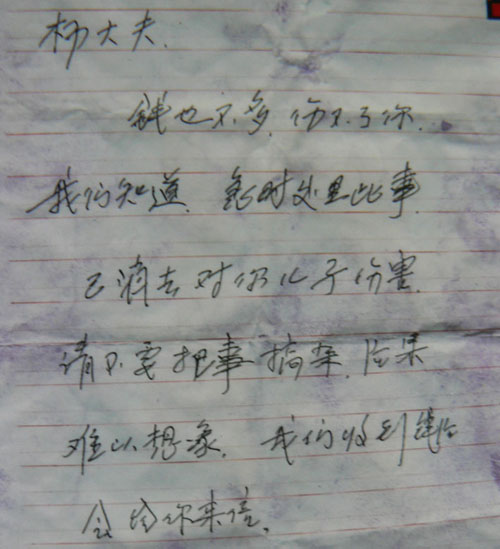 杨大夫.
钱也不多,伤不了你..
我们知道.急时处里此事.
己消去对你儿子伤害.
请不要把事搞杂.后果
难以想象.我们收到钱后
会给你来信.